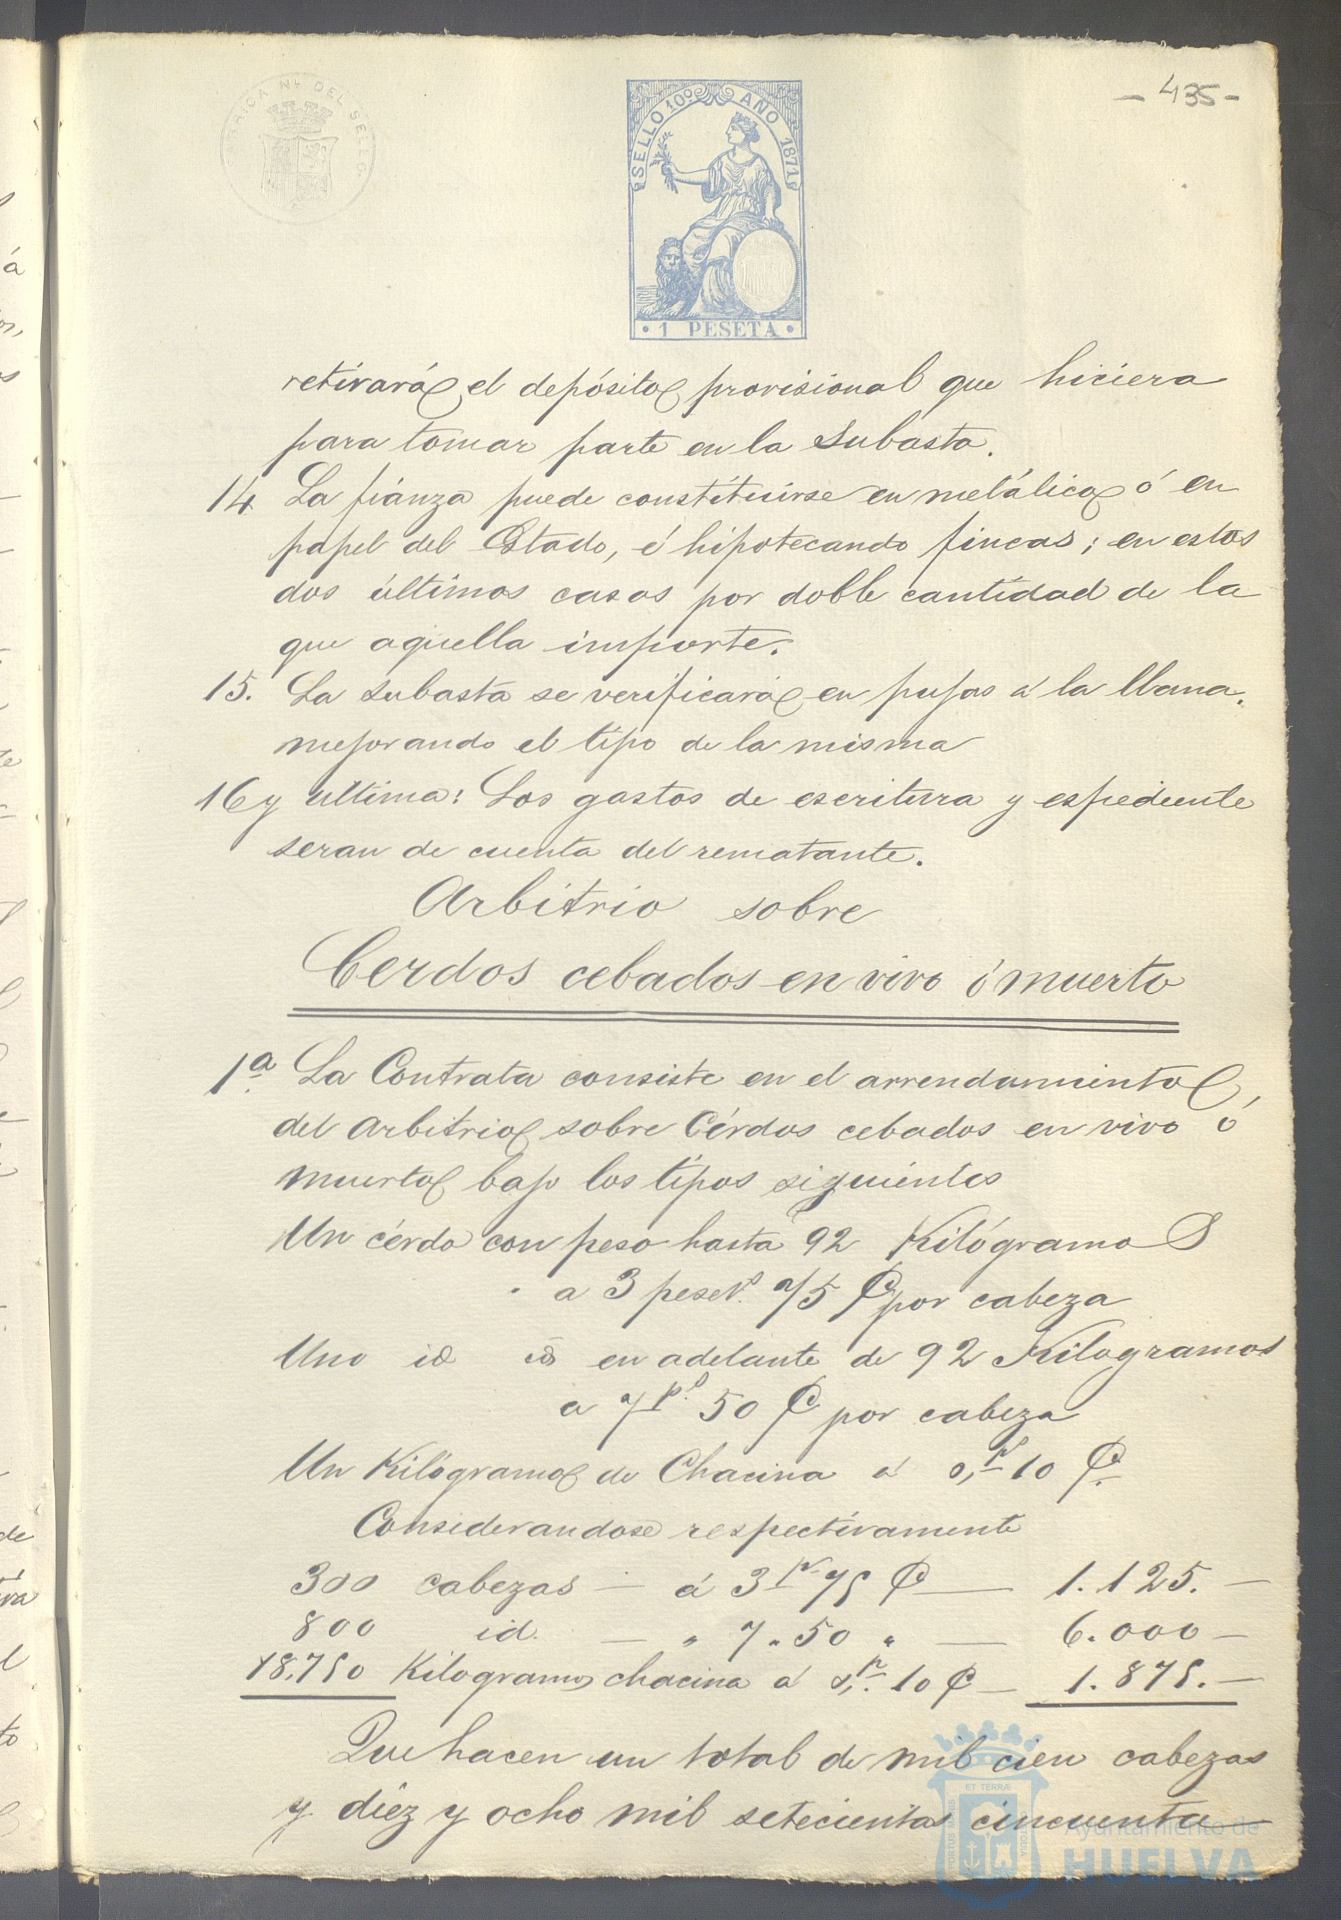 - 435 -
FABRICA Nl. DEL SELLO
SELLO 10º AÑO 1871
· 1 PESETA ·
retirará el depósito provisional que hiciera
para tomar parte en la Subasta.
14 La fianza puede constituirse en metálico ó en
papel del Estado, é hipotecando fincas; en estos
dos últimos casos por doble cantidad de la
que aquella importe.
15. La Subasta se verificará en pujas á la llana,
mejorando el tipo de la misma
16 y ultima: Los gastos de escritura y espediente
seran de cuenta del rematante.
Arbitrio sobre
Cerdos cebados en vivo ó muerto
1ª La Contrata consiste en el arrendamiento
del arbitrio sobre Cérdos cebados en vivo ó
muerto bajo los tipos siguientes
Un cérdo con peso hasta 92 Kilógramos
a 3 peset.s 75 C por cabeza
Uno id id en adelante de 92 Kilogramos
a 7 p.s 50 C por cabeza
Un Kilógramo de Chacina á 0, p.s 10 C.
Considerandose respectivamente
300 cabezas — á 3 p.s 75 C — 1.125. —
800 id. — " 7 " 50 " — 6.000 —
18.750 Kilogramos chacina á 0, p.s 10 C — 1.875. —
Que hacen un total de mil cien cabezas
y diéz y ocho mil setecientas cincuenta
ET TERRÆ
Ayuntamiento de
HUELVA